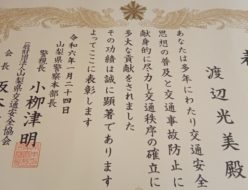 表
渡辺光美殿
あなたは多年にわたり交通安全
思想の普及と交通事故防止に
献身的に尽力し交通秩序の確立に
多大な貢献をされました
その功績は誠に顕著であります
よってここに表彰します
令和六年一月二十四日
山梨県警察本部長
警視長 小柳津明
一般財団法人山梨県交通安全協会
会長